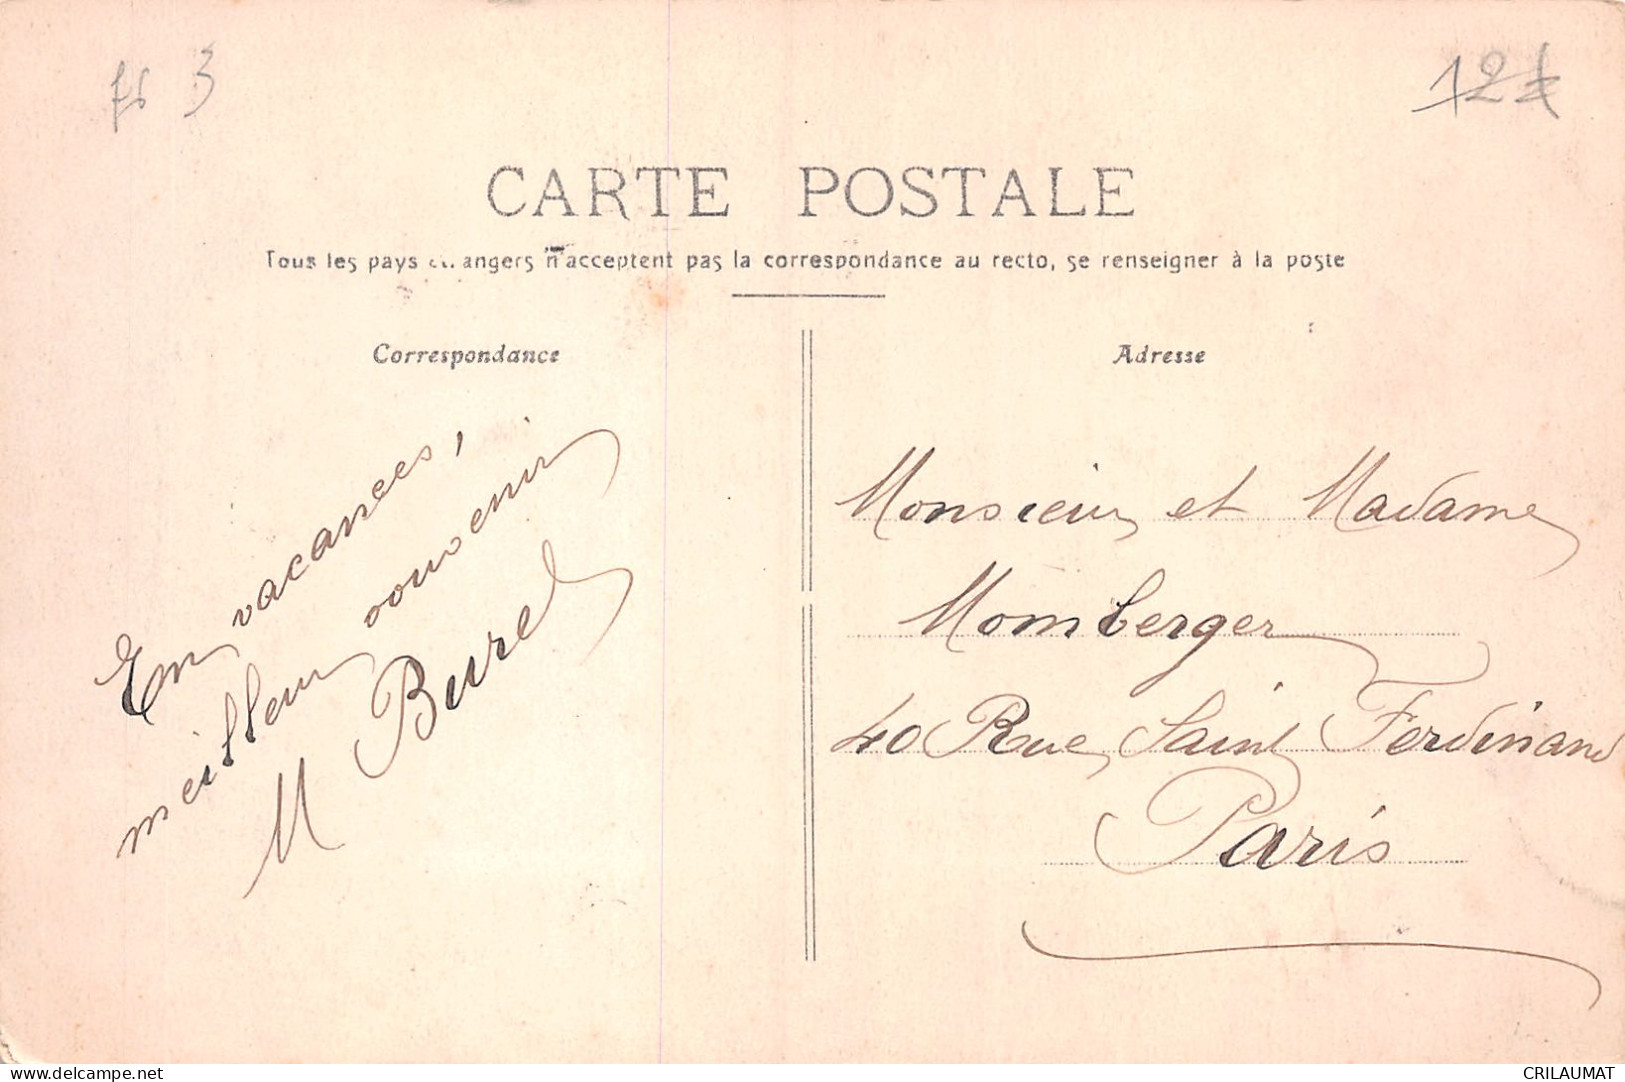 3
12€
CARTE POSTALE
Tous les pays étrangers n'acceptent pas la correspondance au recto, se renseigner à la poste
Correspondance
Adresse
En vacances,
meilleur souvenir
M Burel
Monsieur et Madame
Momberger
40 Rue Saint Ferdinand
Paris
delcampe.net
CRILAUMAT